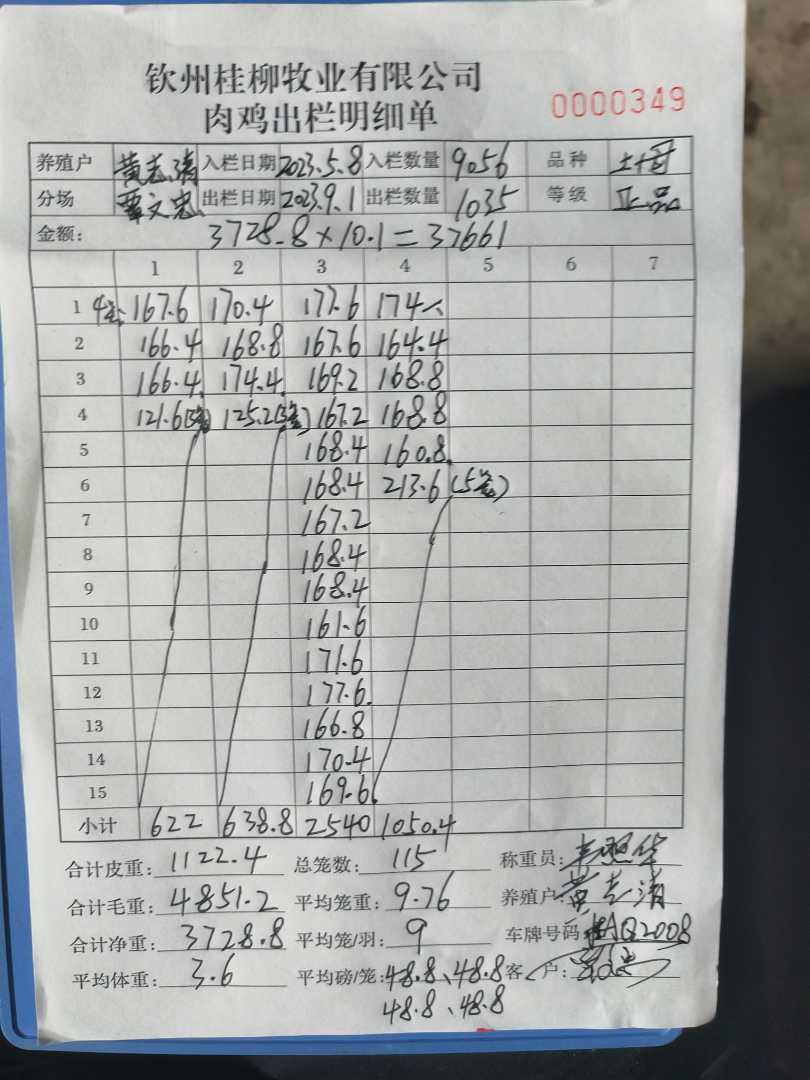 钦州桂柳牧业有限公司
肉鸡出栏明细单
0000349
养殖户 黄志清 入栏日期 2023.5.8 入栏数量 9056 品种
分场 覃文忠 出栏日期 2023.9.1 出栏数量 1035 等级 正品
金额: 3728.8×10.1=37661
1 2 3 4 5 6 7
1 4笼 167.6 170.4 177.6 174
2 166.4 168.8 167.6 164.4
3 166.4 174.4 169.2 168.8
4 121.6(3笼) 125.2(3笼) 167.2 168.8
5 168.4 160.8
6 168.4 213.6(5笼)
7 167.2
8 168.4
9 168.4
10 161.6
11 171.6
12 177.6
13 166.8
14 170.4
15 169.6
小计 622 638.8 2540 1050.4
合计皮重: 1122.4 总笼数: 115 称重员:
合计毛重: 4851.2 平均笼重: 9.76 养殖户: 黄志清
合计净重: 3728.8 平均笼/羽: 9 车牌号码: 桂AQ2008
平均体重: 3.6 平均磅/笼: 48.8、48.8 客户:
48.8、48.8